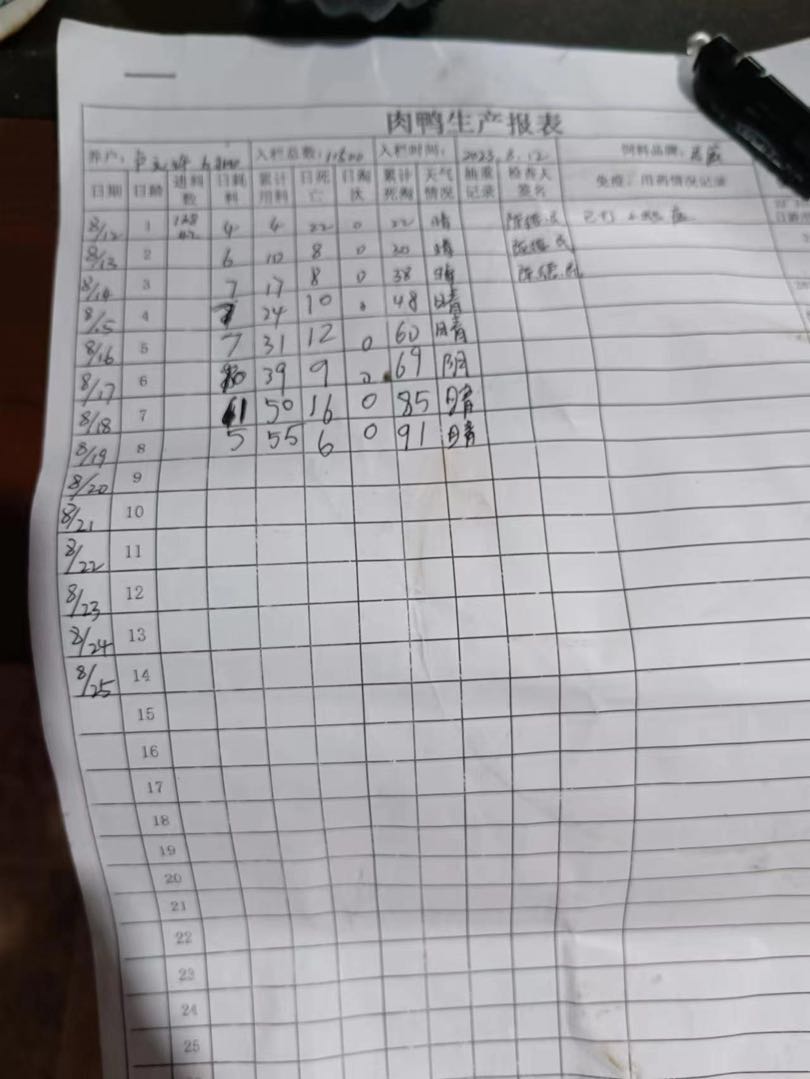 肉鸭生产报表
养户: 入栏总数:11500 入栏时间: 2023.8.12 饲料品牌:
日期 日龄 进料数 日耗料 累计用料 日死亡 日淘汰 累计死淘 天气情况 抽重记录 检查人签名 免疫、用药情况记录
8/12 1 128 42 4 4 22 0 22 晴
8/13 2 6 10 8 0 30 晴
8/14 3 7 17 8 0 38 晴
8/15 4 7 24 10 0 48 晴
8/16 5 7 31 12 0 60 晴
8/17 6 39 9 0 69 阴
8/18 7 11 50 16 0 85 晴
8/19 8 5 55 6 0 91 晴
8/20 9
8/21 10
8/22 11
8/23 12
8/24 13
8/25 14
15
16
17
18
19
20
21
22
23
24
25